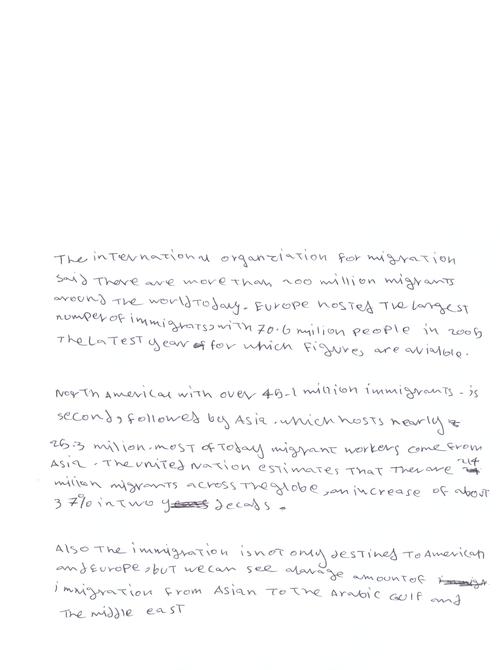 The international organziation for migration
said There are more than 200 million migrants
around The world Today. Europe hosted The largest
numper of immigrats, with 70.6 milion people in 2005
The LaTesT year of for which figures are avialble.
NorTh Americac with over 45.1 million immigrants. is
second, followed by Asia. which hosts nearly
25.3 milion. most of Today migrant workers come from
Asia. The united Nation estimates ThaT There are 214
milion migrants across The globe, an increase of about
37% in Two decads.
Also The immigration is not only destined To American
and Europe, but we can see alarage amount of
immigration from Asian To The Arabic Gulf and
The middle east